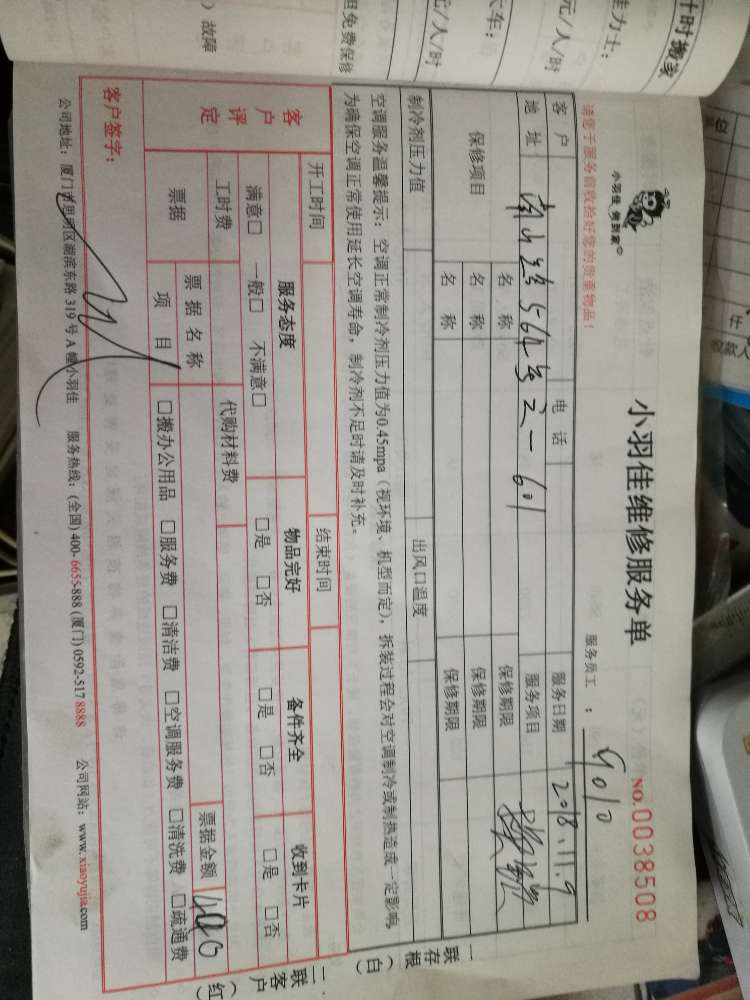 计时搬家
佳力士：
元/人/时
大车：
元/人/时
但免费保修
）故障
单位
收款人
小羽佳 佳到家
小羽佳维修服务单
NO.0038508
请您于服务前收拾好您的贵重物品！
服务员工：
客户
电话
服务日期
2018.11.9
地址
服务项目
保修项目
名称
保修期限
名称
保修期限
名称
保修期限
制冷剂压力值
出风口温度
空调服务温馨提示：空调正常制冷剂压力值为0.45mpa（视环境、机型而定），拆装过程会对空调制冷或制热造成一定影响，
为确保空调正常使用延长空调寿命，制冷剂不足时请及时补充。
开工时间
结束时间
客户评定
服务态度
物品完好
备件齐全
收到卡片
满意□ 一般□ 不满意□
□是 □否
□是 □否
□是 □否
工时费
代购材料费
票据
票据名称
票据金额
项目
□搬办公用品 □服务费 □清洁费 □空调服务费 □清洗费 □疏通费
客户签字：
公司地址：厦门市思明区湖滨东路 319 号 A 幢小羽佳 服务热线：(全国) 400-6655-888 (厦门) 0592-517 8888 公司网站：www.xiaoyujia.com
一联存根（白）
二联客户（红